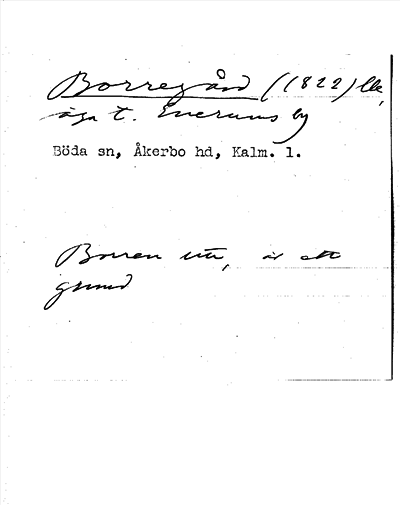 Borregård (1822) lk,
äga t. Enerums by
Böda sn, Åkerbo hd, Kalm. l.
Borren , är ett
grund